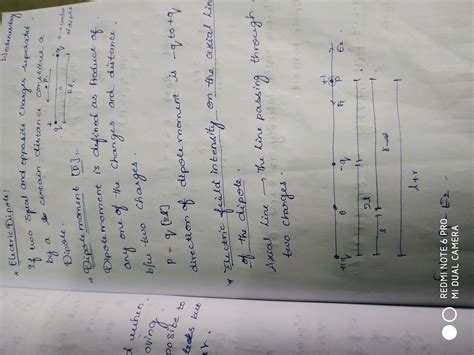 Wednesday
* Electric Dipole:
If two equal and opposite charges separated
by a certain distance constitute a
Dipole.
-q
2l
q
* Dipole moment [P]:-
Dipole moment is defined as Product of
any one of the charges and distance
b/w two charges
P = q [2l]
direction of dipole moment is -q to +q
* Electric field intensity on the axial line
of the dipole.
Axial line → The line passing through
two charges.
+q
0
-q
E1
P
+1
E2
l
2l
r-l
l+r
E2
d when
oving
posite to
but
r.
REDMI NOTE 6 PRO
MI DUAL CAMERA